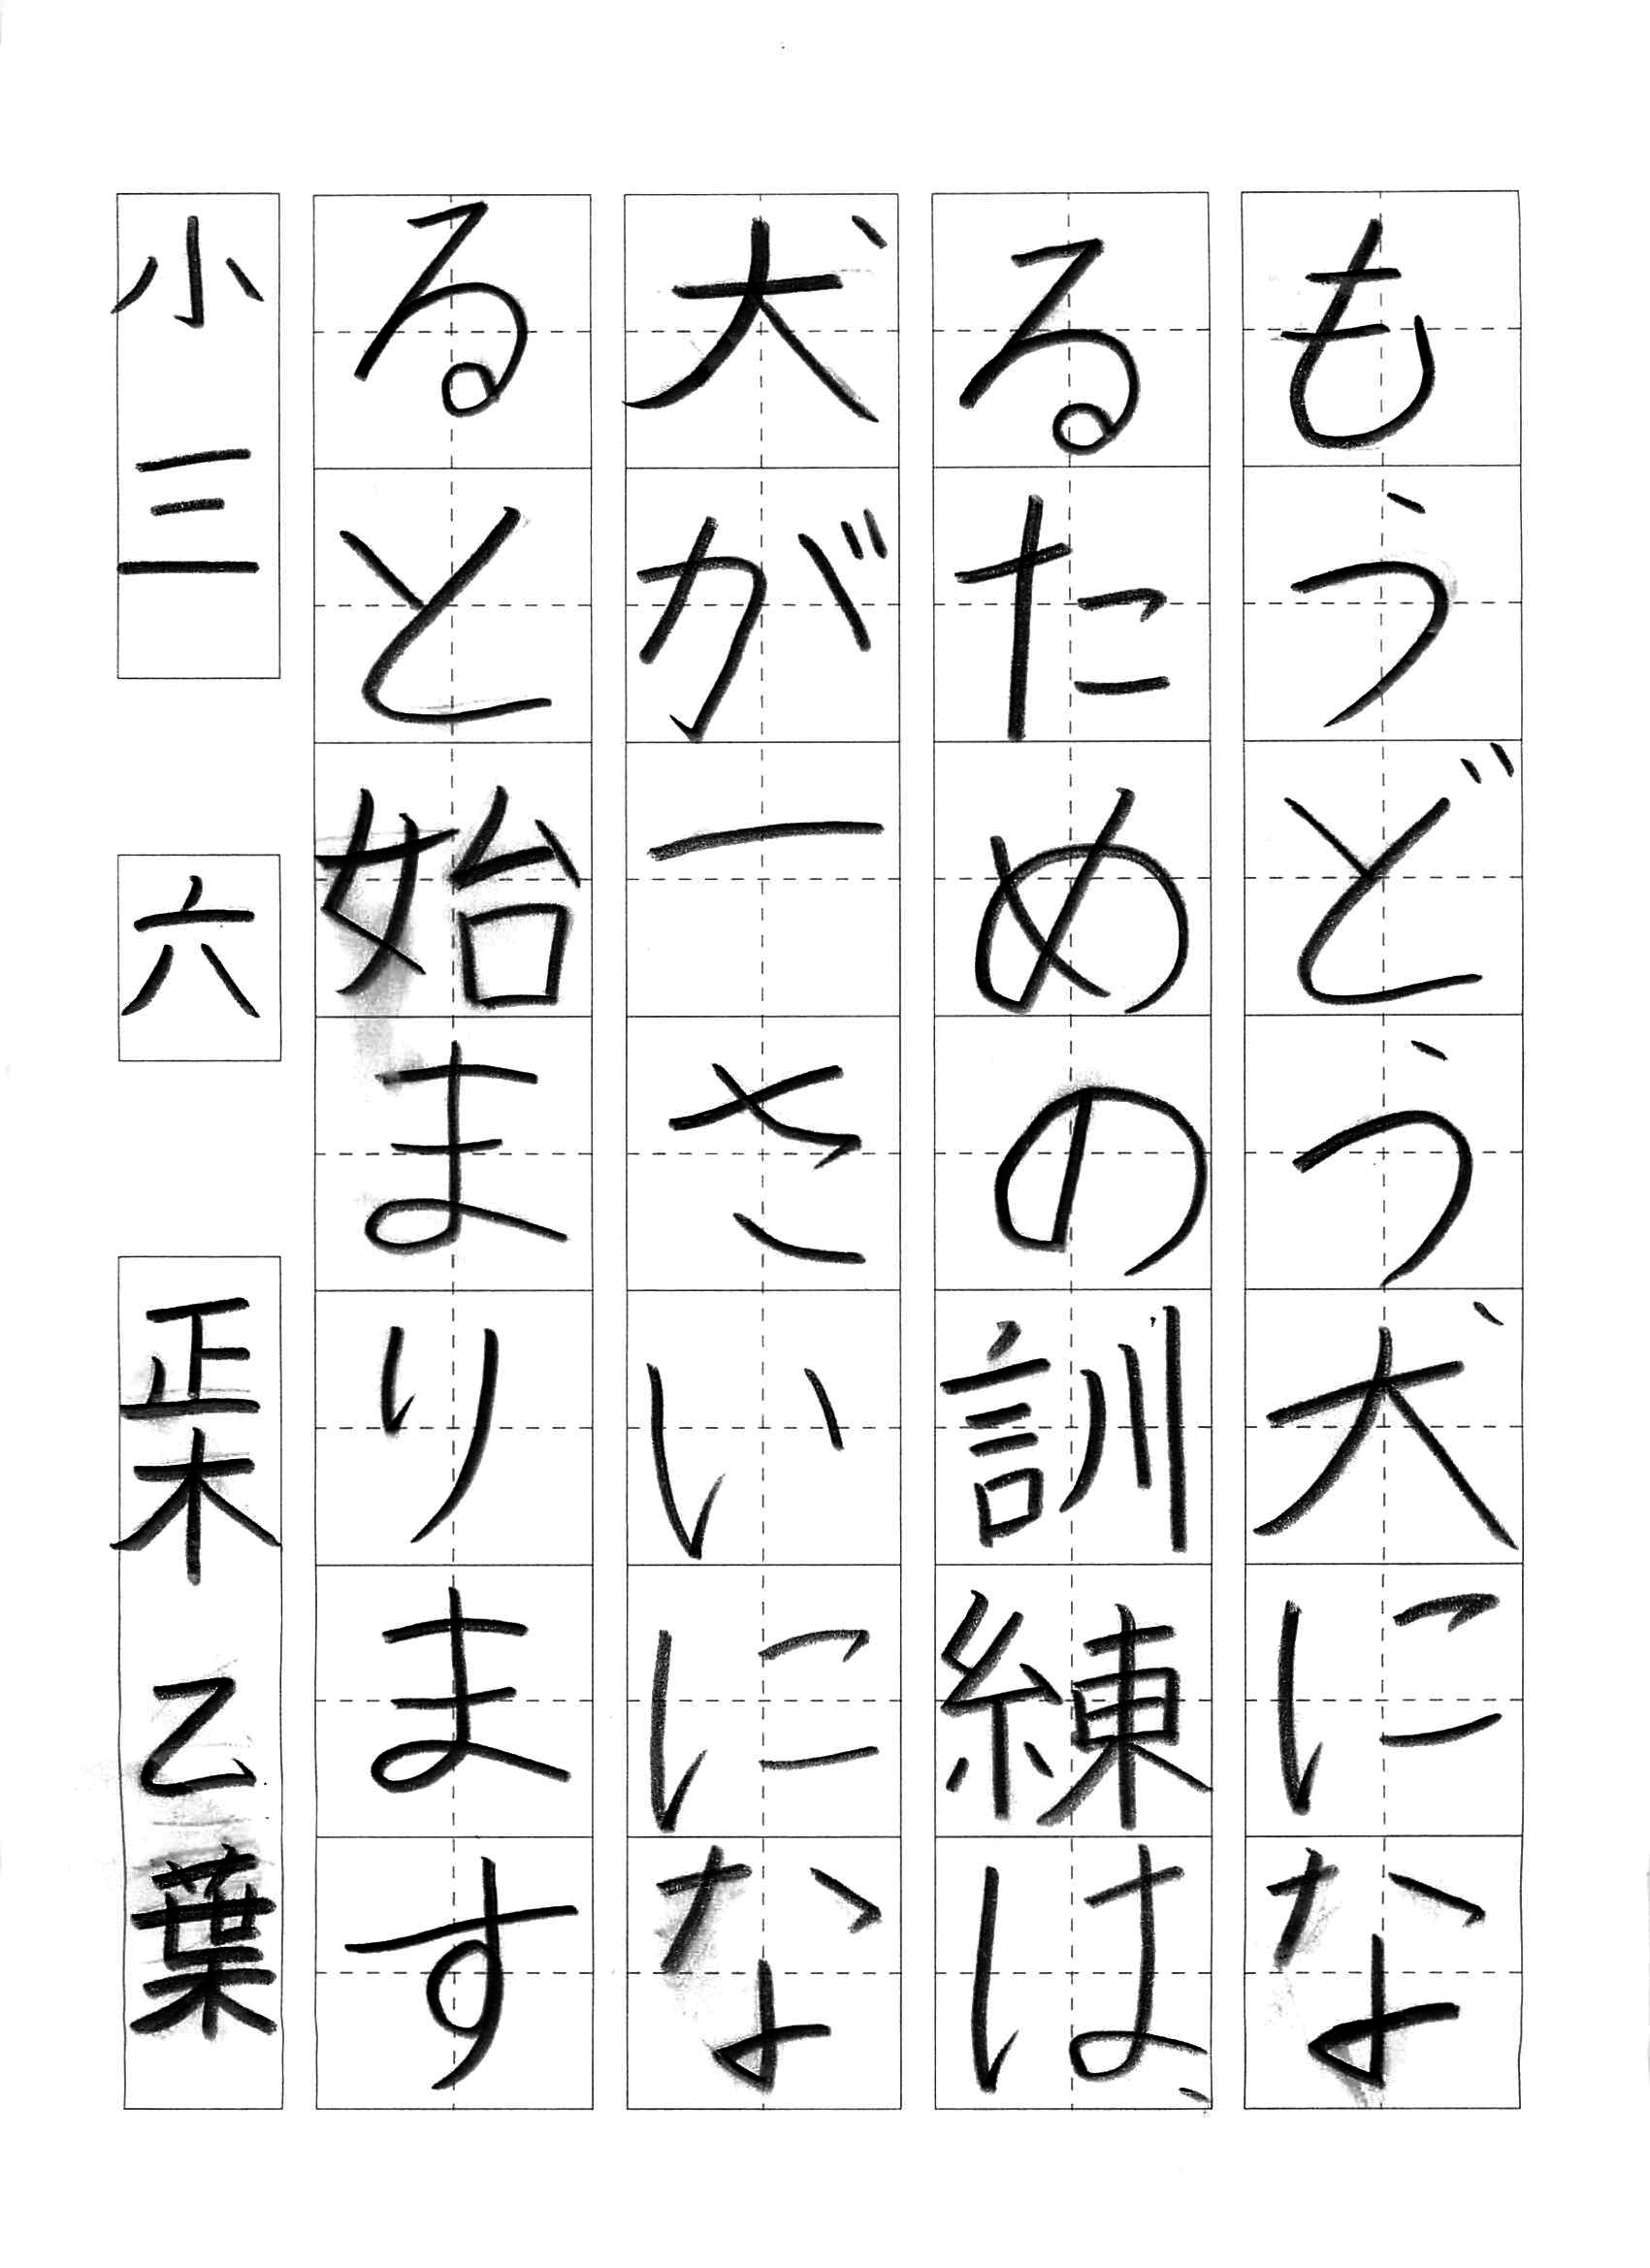 もうどう犬にな
るための訓練は、
犬が一さいにな
ると始まります
小三 六 正木乙葉